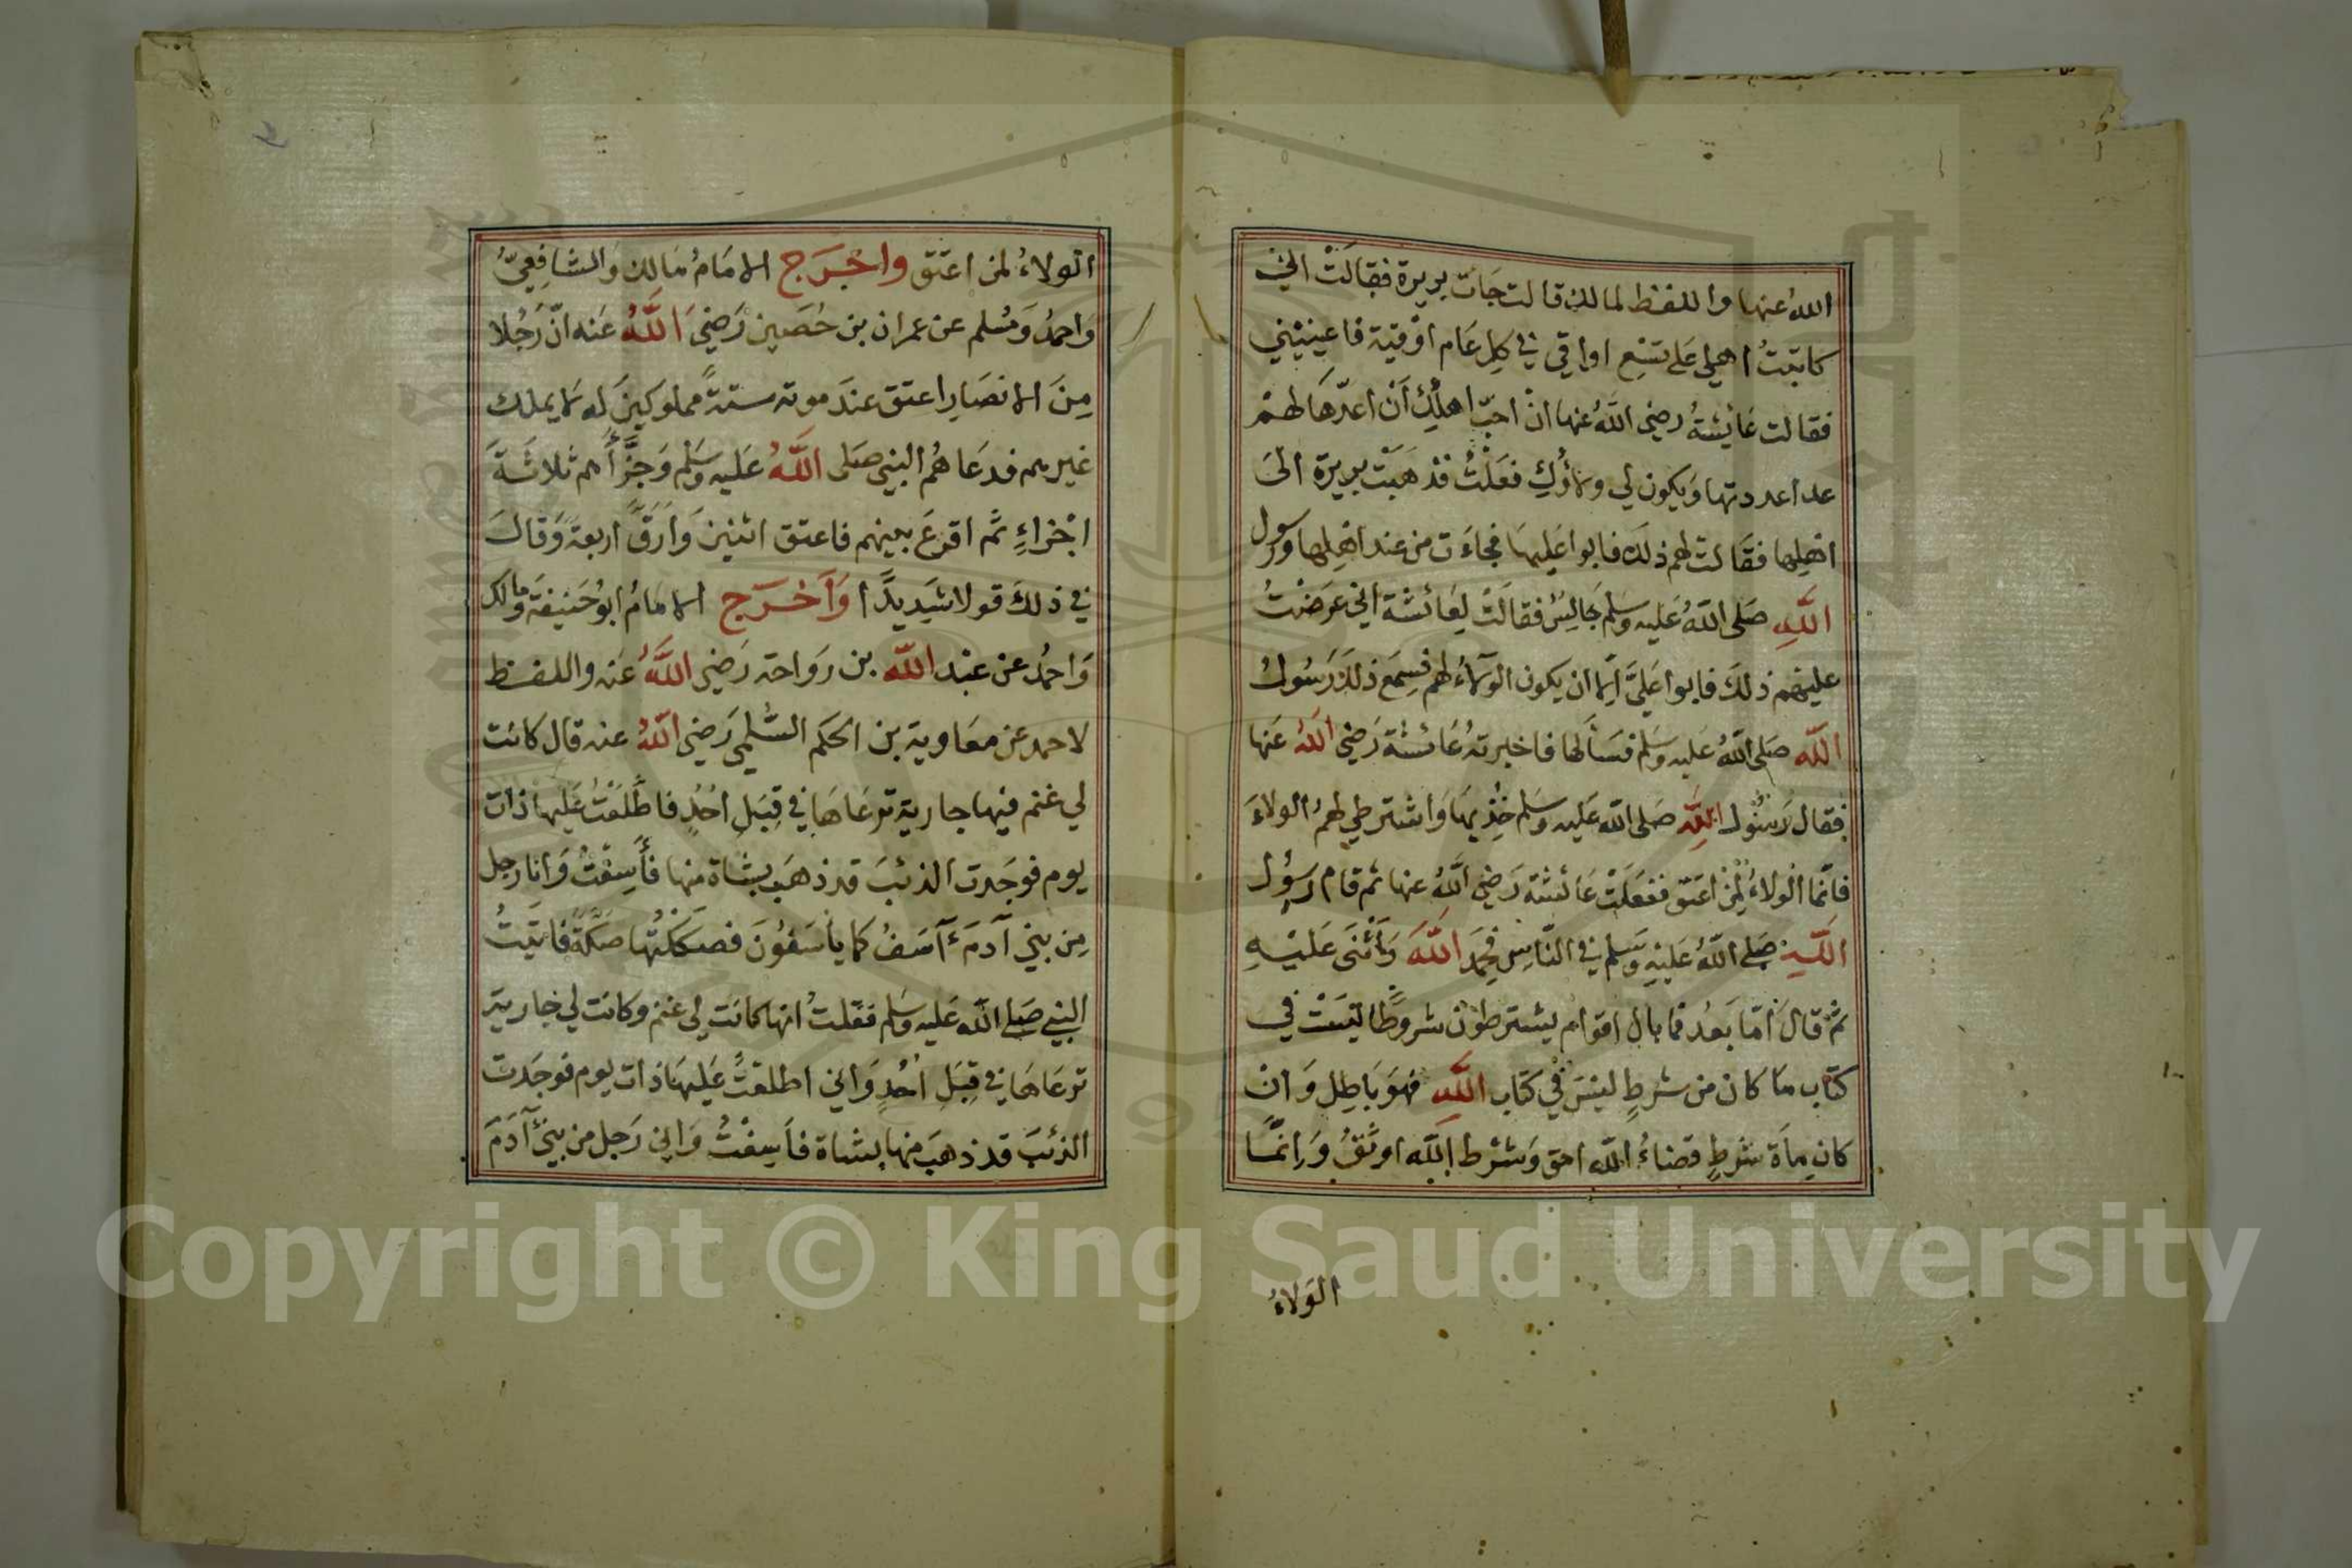 الله عنها واللفظ لمالك قالت جَاءت بريرة فقالَتْ اني
كاتبتُ اهلي عَلى تسْعِ اواقي في كلِ عَام اوْقية فاعينيْني
فقالت عَائِشةُ رضي اللَّهُ عنها انْ احبّ اهلُكِ أَنْ اعدّهَا لهمْ
عدا عددتها وَيكون لي ولاؤُكِ فعَلْتُ فذهَبَتْ بريرة الىَ
اهْلِها فقَالت لهم ذلك فابوا عَليهَا فجاءَت من عند اهْلِها ورسول
اللَّهِ صَلى اللَّهُ عَليه وسَلم جَالِسٌ فقالَتْ لِعَائشة اني عَرَضْتُ
عليهم ذلكَ فابوا عَليَّ اِلا ان يكون الولاءُ لهم فسِمَع ذلكَ رَسُولُ
اللَّه صَلى اللَّهُ عَليه وسَلم فسَألها فاخبرتهُ عَائشة رَضي اللَّهُ عَنها
فقال رَسُولُ اللَّهِ صَلى اللَّه عَليه وسَلم خُذِيهَا وَاشترطي لهمُ الولاءَ
فانّما الْولاءُ لِمَنْ اعتَق ففعَلَتْ عَائشة رَضي اللَّهُ عنها ثم قام رسُول
اللَّهِ صَلى اللَّهُ عَليْهِ وَسَلم في النَّاسِ فحَمِدَ اللَّهَ وَأثْنَى عَليْهِ
ثمْ قالَ أمّا بَعدُ فما بال اقوامٍ يشترطوْن شروطًا ليْسَتْ في
كتاب مَا كان من شرطٍ ليْسَ في كتاب اللَّهِ فهوَ بَاطِل وَانْ
كان مِاَة شرطٍ قضاءُ اللَّه احق وَشرْط اللَّه اوثَقُ وَاِنمَّا
الوَلاءُ
الولاءُ لمن اعتَق واخْرَج الامَامُ مَالك وَالشَافِعِيُّ
وَاحمدُ وَمُسْلم عن عمران بن حُصَين رَضيَ اللَّهُ عَنه انّ رَجُلا
مِنَ الانصَارِ اعتق عندَ موته ستةً مملوكينَ له لا يملك
غيرهم فدعَاهُم النبي صَلى اللَّهُ عَليه وسَلم وَجزَّأَهم ثلاثَةَ
اجْزاءٍ ثمَّ اقرعَ بينهم فاعتق اثنينَ وَأَرَقَّ اربعةً وَقالَ
في ذلكَ قولا شَديدًا وَأَخْرَج الامَامُ ابوُحَنيفَة وَمالك
وَاحمدُ عن عبْد اللَّه بن رَوَاحة رَضي اللَّهُ عَنه واللفظ
لاحمد عن معَاوية بن الحكَم السُّلمي رَضي اللَّهُ عنه قال كانت
لي غنم فيها جارية ترعَاهَا في قِبَلِ اُحُدٍ فاطَّلعْتُ عَليها ذات
يوم فوجَدت الذئبَ قد ذهَبَ بشاة منها فأَسِفْتُ وَانا رجل
مِن بني آدمَ آسَفُ كما يأسَفوُنَ فصكَكْتُها صَكَّةً فاتَيتُ
النبي صَلى اللَّه عَليه وسَلم فقلتُ انها كانَت لي غنم وكانت لي جارية
ترعَاهَا في قِبَلِ اُحُدٍ وَاني اطلعْتُ عَليهَا ذات يوم فوجَدت
الذئبَ قد ذهَبَ منها بشاة فأَسِفْتُ وَاني رَجل من بني آدَمَ
Copyright © King Saud University